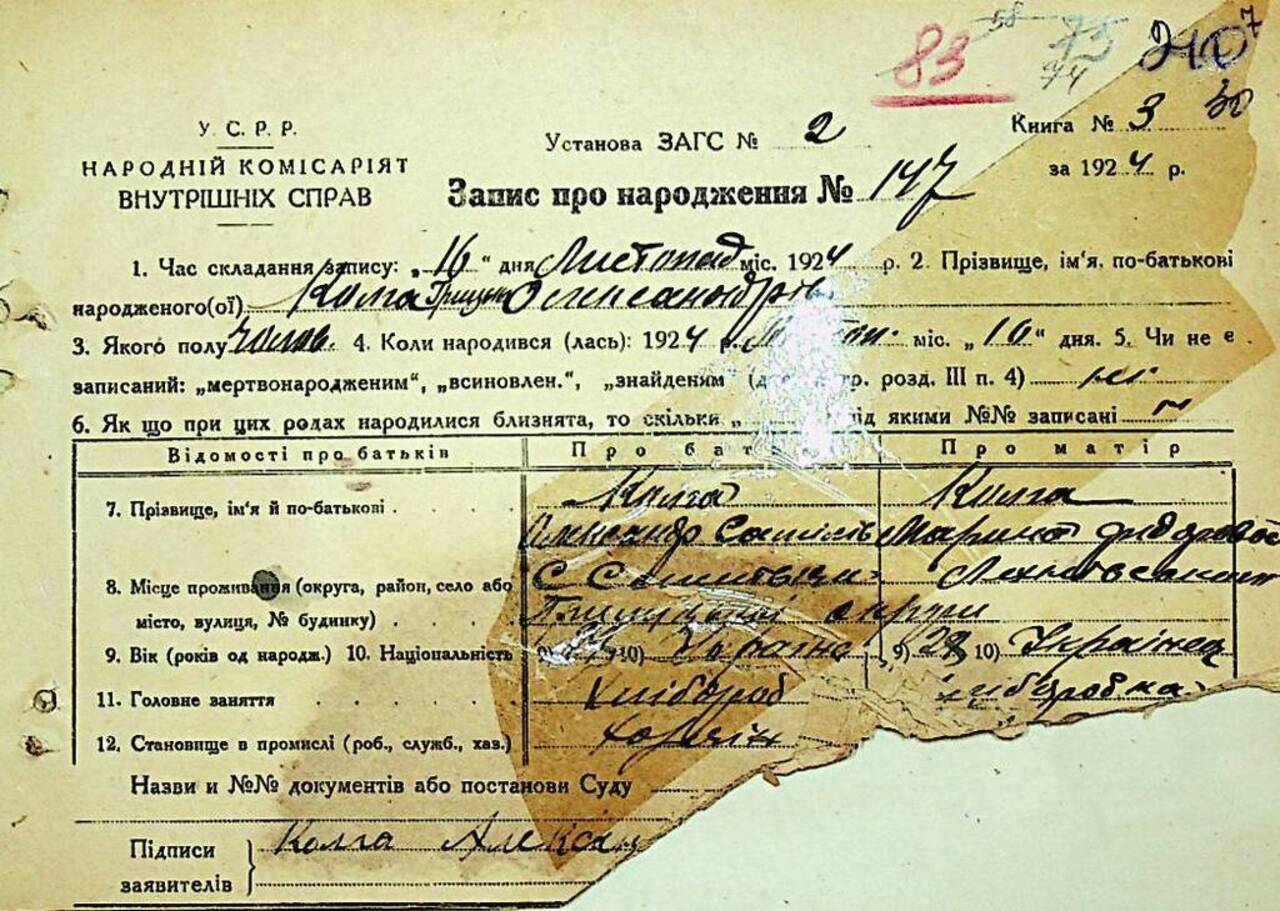 83 58 75 74 210 7
30
У. С. Р. Р.
НАРОДНІЙ КОМІСАРІЯТ
ВНУТРІШНІХ СПРАВ
Установа ЗАГС № 2
Книга № 3
за 1924 р.
Запис про народження № 147
1. Час складання запису: „16“ дня Листопад міс. 1924 р. 2. Прізвище, ім'я, по-батькові
народженого(ої) Колга Грицько Олександрів
3. Якого полу чолов. 4. Коли народився (лась): 1924 р. міс. „16“ дня. 5. Чи не є
записаний: „мертвонародженим“, „всиновлен.“, „знайденим розд. III п. 4) ні
6. Як що при цих родах народилися близнята, то скільки „ під якими №№ записані
Відомості про батьків Про бат Про матір
7. Прізвище, ім'я й по-батькові Колга Колга
Олександр Марина
8. Місце проживання (округа, район, село або С
місто, вулиця, № будинку) округи
9. Вік (років од народж.) 10. Національність 10) 9) 10) Українка
11. Головне заняття Хлібороб хліборобка
12. Становище в промислі (роб., служб., хаз.) хазяїн
Назви и №№ документів або постанови Суду
Підписи
заявителів
Колга